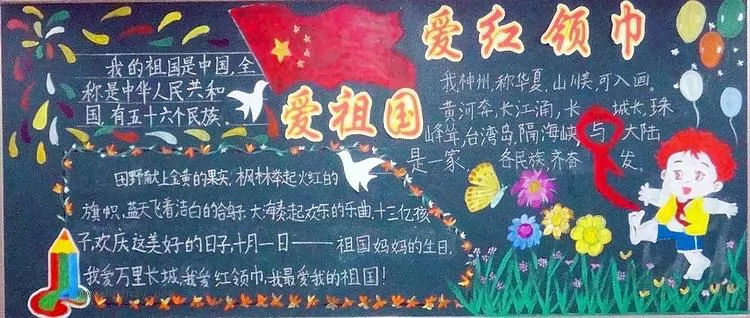 爱红领巾
爱祖国
我的祖国是中国,全
称是中华人民共和
国,有五十六个民族。
我神州,称华夏,山川美,可入画。
黄河奔,长江涌,长城长,珠
峰耸,台湾岛,隔海峡,与大陆
是一家 各民族,齐奋发。
田野献上金黄的果实,枫林举起火红的
旗帜,蓝天飞着洁白的鸽子,大海奏起欢乐的乐曲,十三亿孩
子,欢庆这美好的日子,十月一日——祖国妈妈的生日,
我爱万里长城,我爱红领巾,我最爱我的祖国!